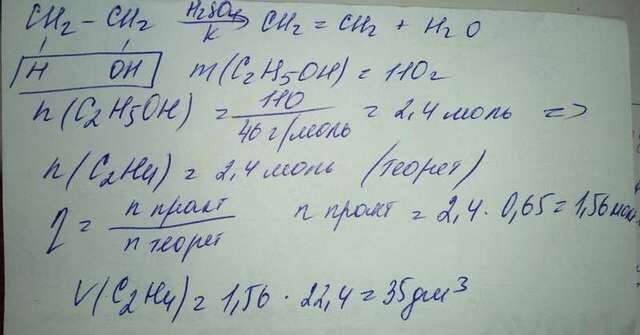 CH2 – CH2 H2SO4 / K → CH2 = CH2 + H2O
H OH m(C2H5OH) = 110г
n(C2H5OH) = 110 / 46 г/моль = 2,4 моль =>
n(C2H4) = 2,4 моль (теорет)
η = n практ / n теорет n практ = 2,4 · 0,65 = 1,56 мол
V(C2H4) = 1,56 · 22,4 = 35 дм³